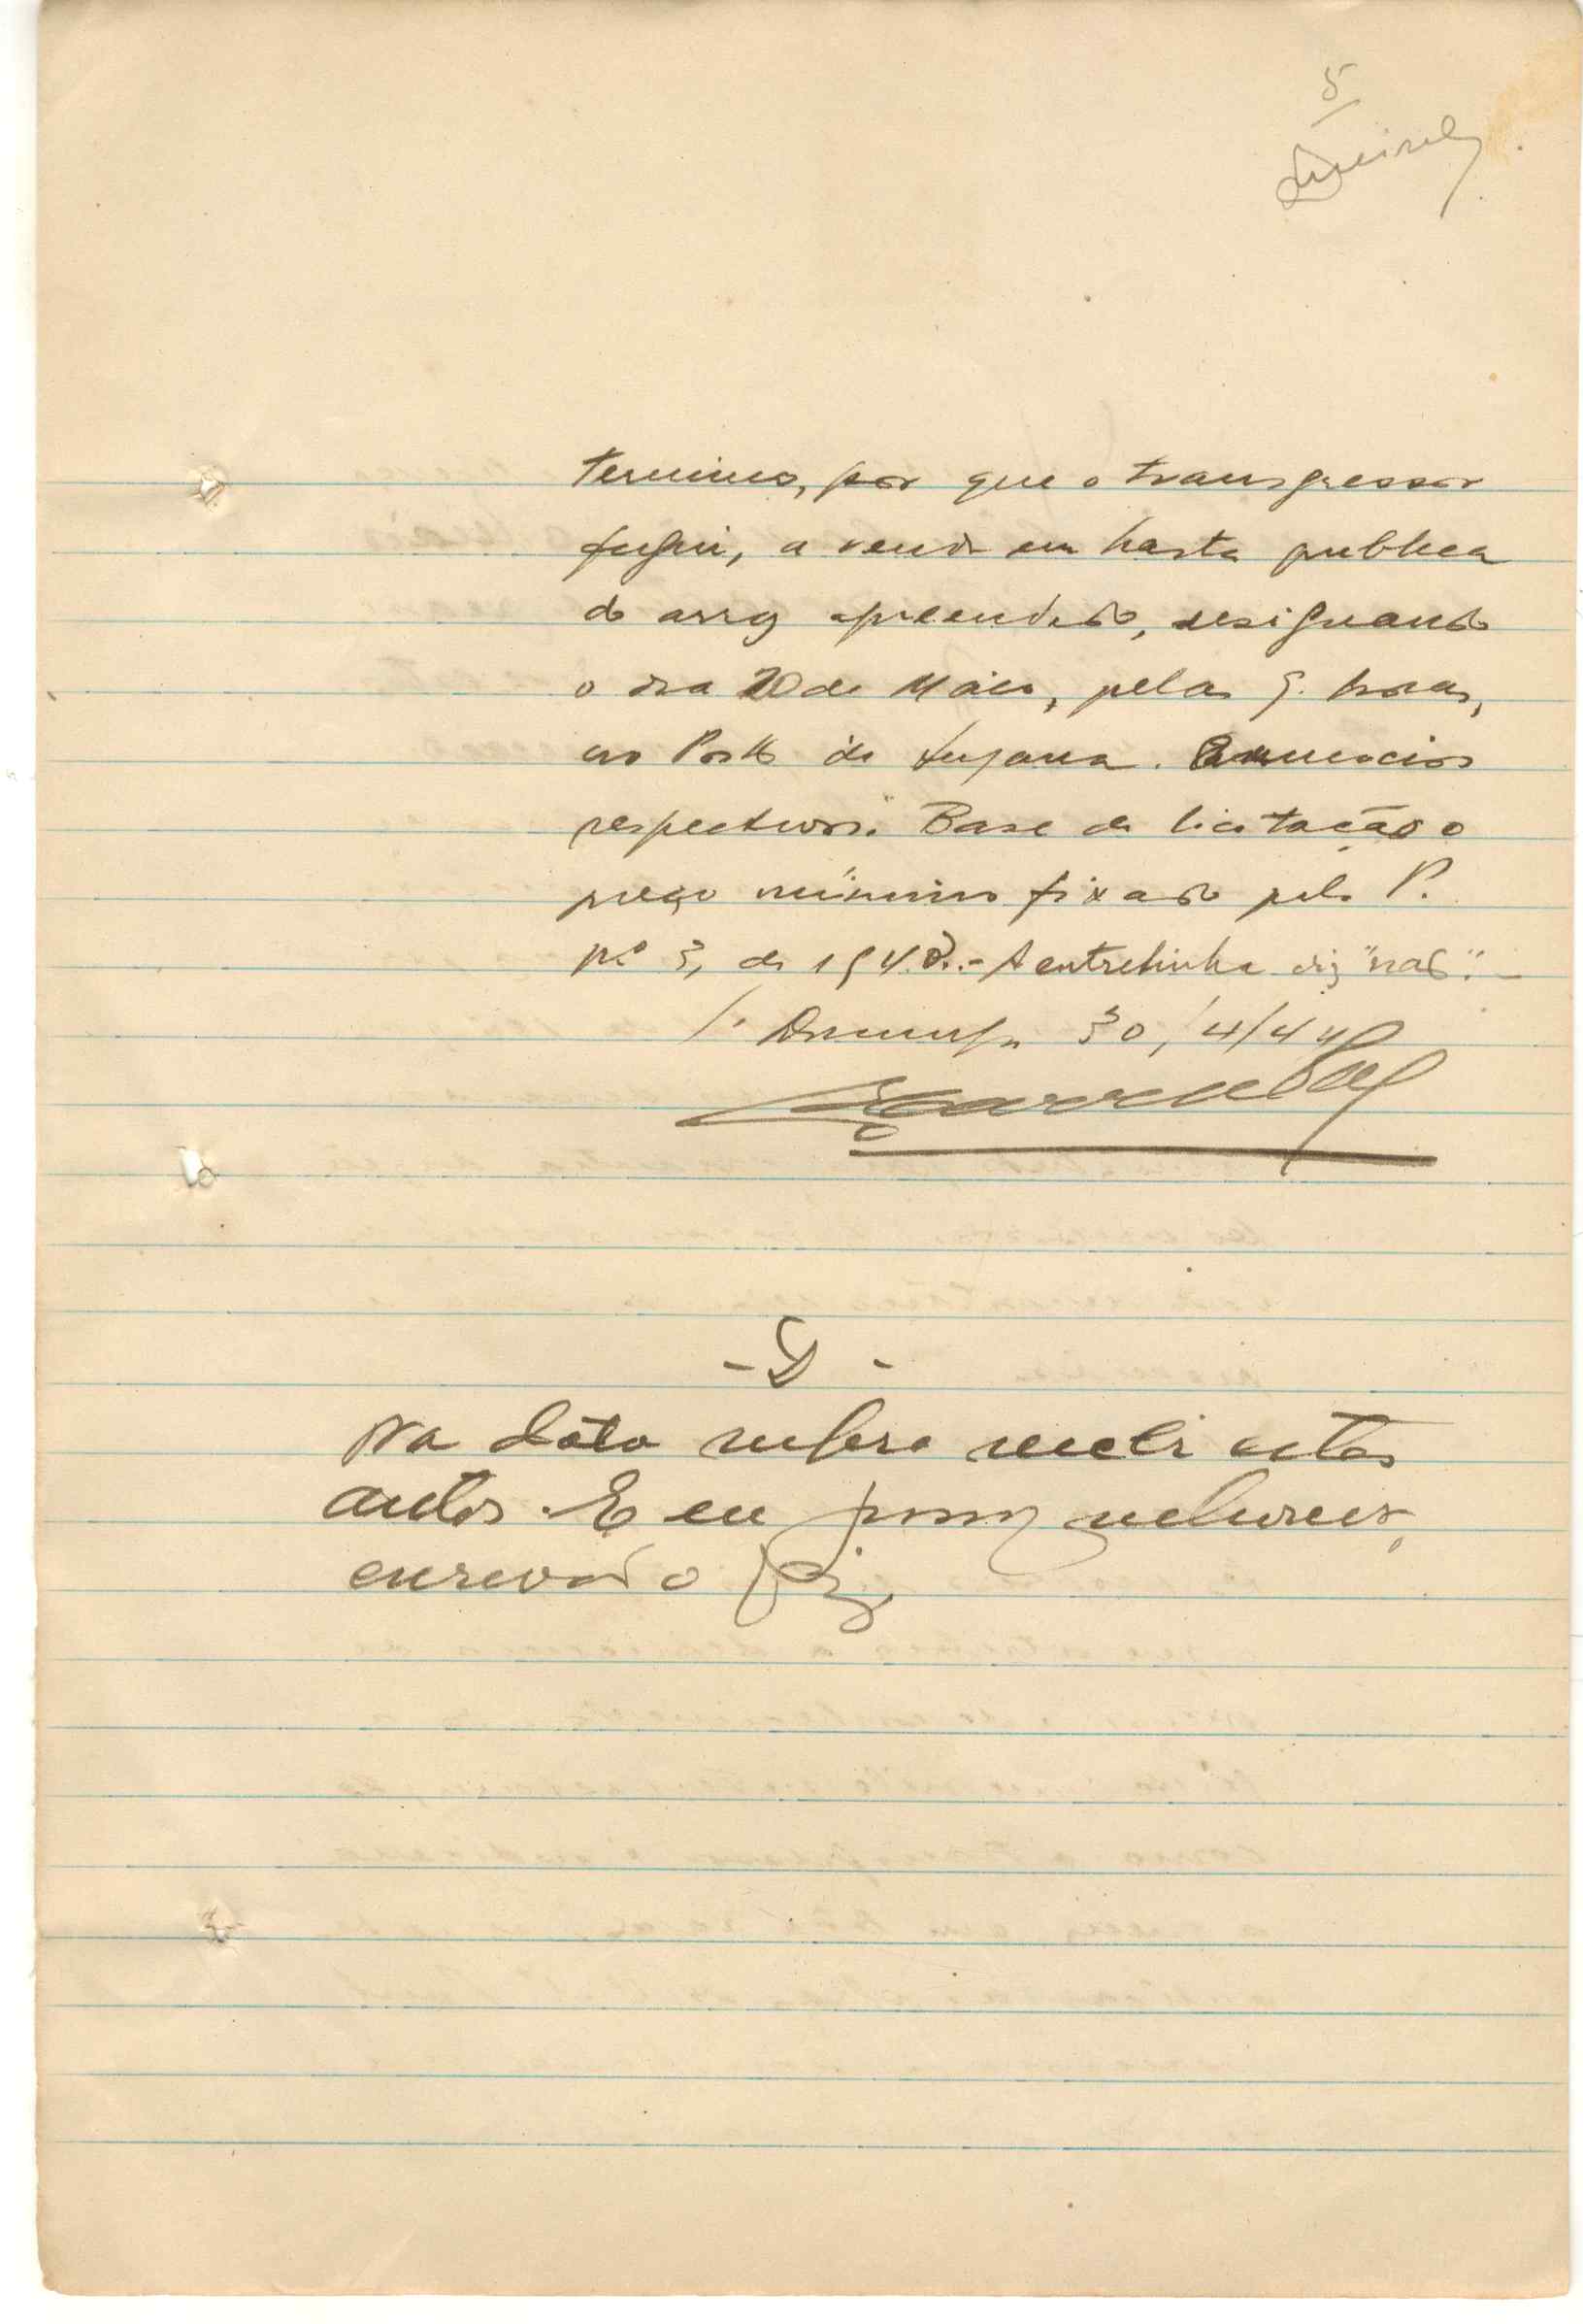 5
termino, por que o transgressor
fugiu, a venda em hasta publica
do arroz apreendido, designando
o dia 20 de Maio, pelas 9. horas,
no Posto de. Anuncios
respectivos. Base da licitação o
preço minimo fixado pelo P.
nº 3, de 194. - A entrelinha diz "não". -
30/4/4
- D -
Na data supra recebi estes
autos. E eu
escrivão o fiz